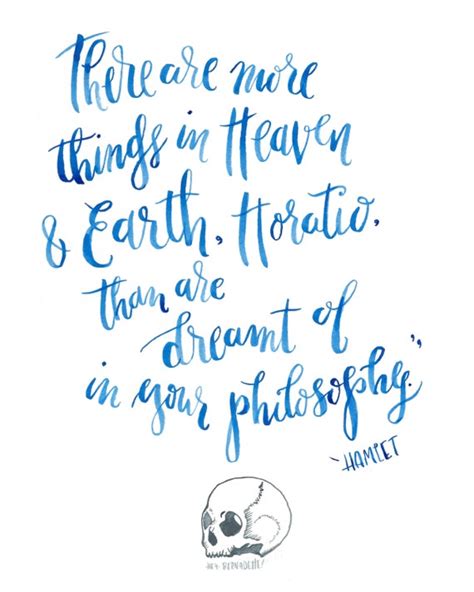 There are more
things in Heaven
& Earth, Horatio,
than are
dreamt of
in your philosophy."
~HAMLET
HEY BERNADETTE!